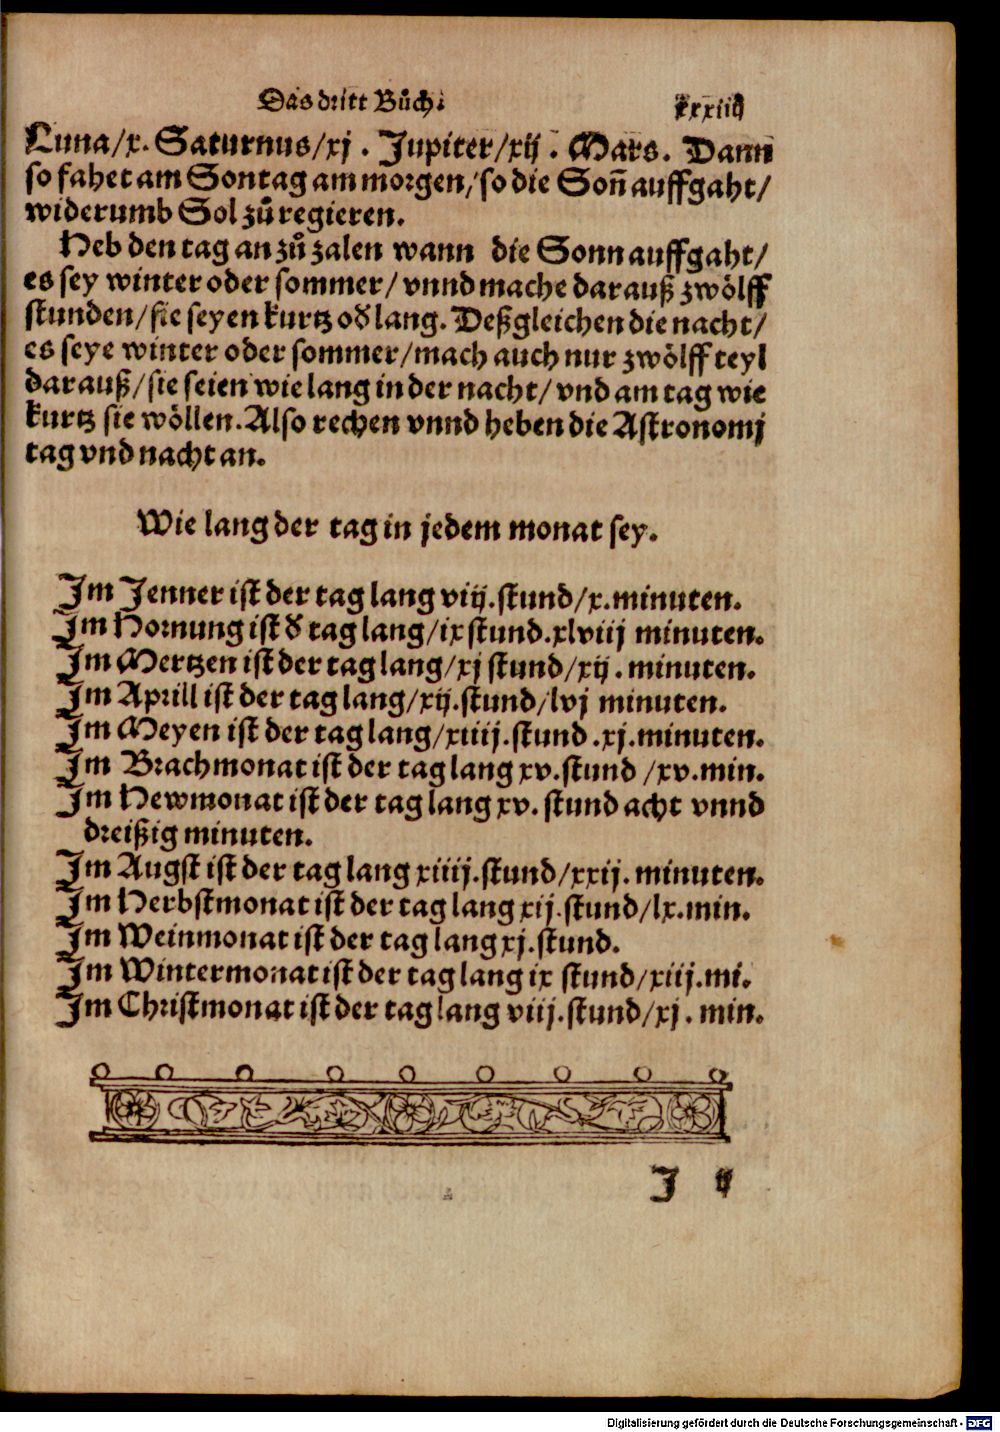 Das dritt Bůch.
xxxiiij
Luna/x. Saturnus/xj. Jupiter/xij. Mars. Dann
so fahet am Sontag am morgen/so die Soñ auffgaht/
widerumb Sol zů regieren.
Heb den tag an zů zalen wann die Sonn auffgaht/
es sey winter oder sommer/vnnd mache darauß zwölff
stunden/sie seyen kurtz oď lang. Deßgleichen die nacht/
es seye winter oder sommer/mach auch nur zwölff teyl
darauß/sie seien wie lang in der nacht/vnd am tag wie
kurtz sie wöllen. Also rechen vnnd heben die Astronomj
tag vnd nacht an.
Wie lang der tag in jedem monat sey.
Im Jenner ist der tag lang viij.stund/x.minuten.
Im Hornung ist ď tag lang/ix stund.xlviij minuten.
Im Mertzen ist der tag lang/xj stund/xij. minuten.
Im Aprill ist der tag lang/xij.stund/lvj minuten.
Im Meyen ist der tag lang/xiiij.stund .xj.minuten.
Im Brachmonat ist der tag lang xv.stund /xv.min.
Im Hewmonat ist der tag lang xv. stund acht vnnd
dreißig minuten.
Im Augst ist der tag lang xiiij.stund/xxij. minuten.
Im Herbstmonat ist der tag lang xij.stund/lx.min.
Im Weinmonat ist der tag lang xj.stund.
Im Wintermonat ist der tag lang ix stund/xiij.mi.
Im Christmonat ist der tag lang viij.stund/xj. min.
J ij
Digitalisierung gefördert durch die Deutsche Forschungsgemeinschaft - DFG